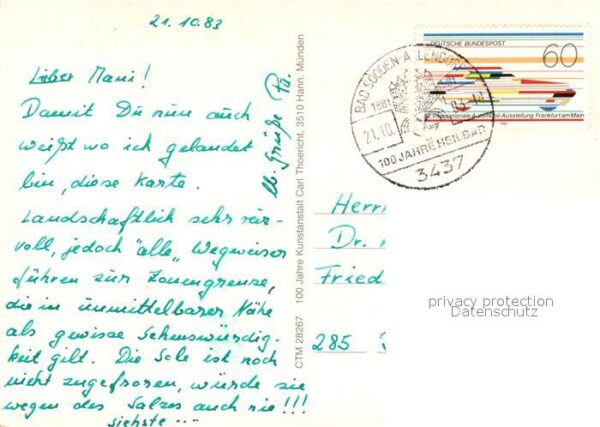 21.10.83
Lieber Mani!
Damit Du nun auch
weißt wo ich gelandet
bin, diese Karte.
Landschaftlich sehr reiz-
voll, jedoch "alle" Wegweiser
führen zur Zonengrenze,
die in unmittelbarer Nähe
als gewisse Sehenswürdig-
keit gilt. Die Sole ist noch
nicht zugefroren, würde sie
wegen des Salzes auch nie!!!
siehste ...
lb. Grüße Pa.
CTM 28267 100 Jahre Kunstanstalt Carl Thoericht, 3510 Hann. Münden
BAD SOODEN-ALLENDORF
1881
21.10.83-18
100 JAHRE HEILBAD
3437
DEUTSCHE BUNDESPOST
60
Internationale Automobil-Ausstellung Frankfurt am Main
Herrn
Dr.
Fried
285
privacy protection
Datenschutz